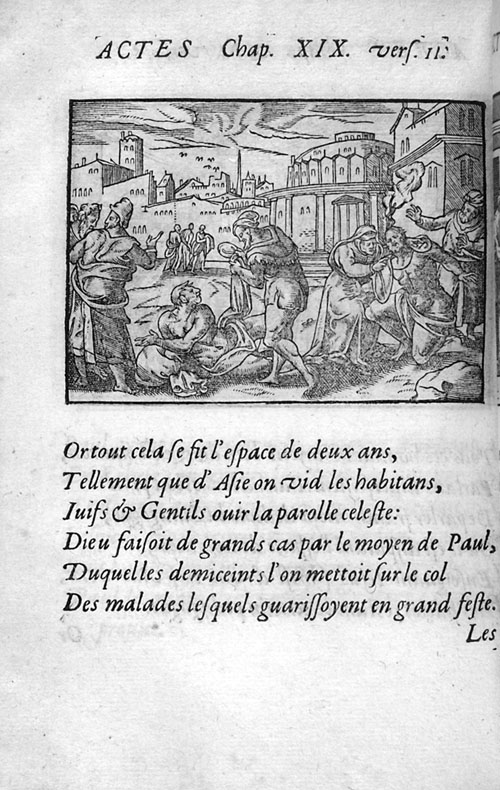 ACTES Chap. XIX. verſ. 11.
Or tout cela ſe fit l'eſpace de deux ans,
Tellement que d'Aſie on vid les habitans,
Iuifs & Gentils ouir la parolle celeſte:
Dieu faiſoit de grands cas par le moyen de Paul,
Duquel les demiceints l'on mettoit ſur le col
Des malades leſquels guariſſoyent en grand feſte.
Les